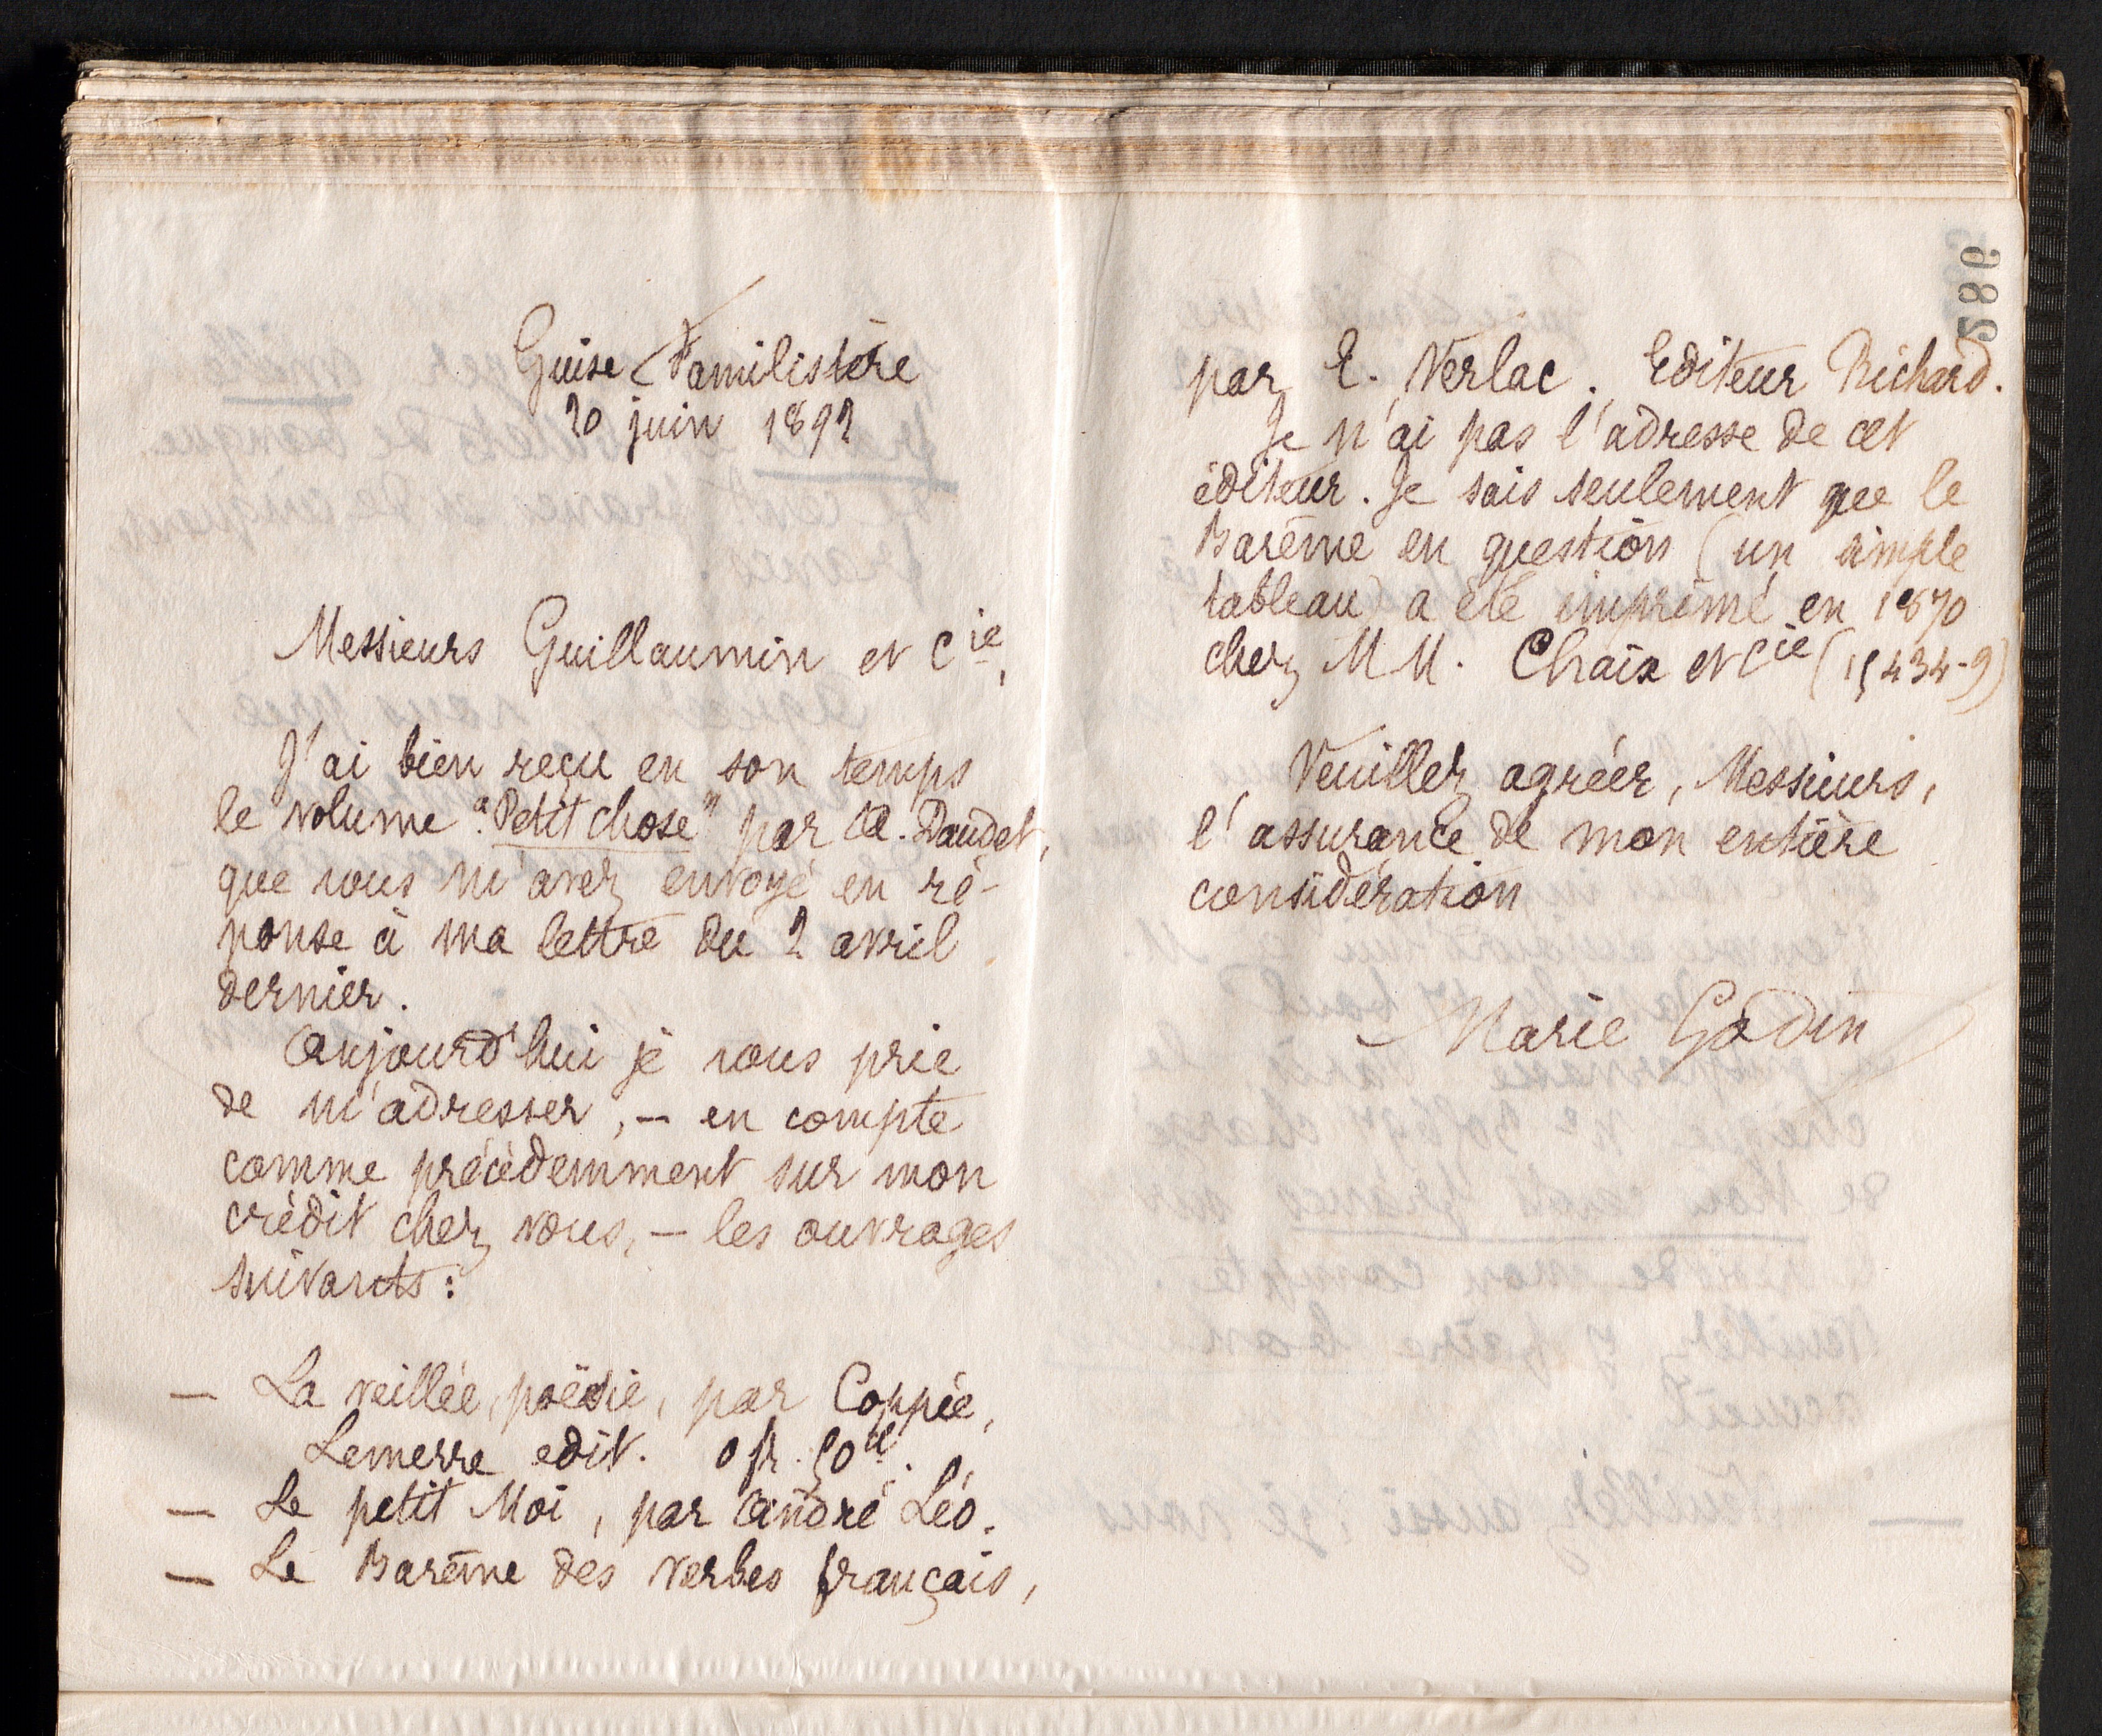 Guise Familistère
20 juin 1892
Messieurs Guillaumin et Cie,
J'ai bien reçu en son temps
le volume "Petit chose" par A. Daudet,
que vous m'avez envoyé en ré-
ponse à ma lettre du 2 avril
dernier.
Aujourd'hui je vous prie
de m'adresser, – en compte
comme précédemment sur mon
crédit chez vous, – les ouvrages
suivants:
– La veillée, poësie, par Coppée,
Lemerre edit. 0 fr. 50 c.
– Le petit Moi, par André Léo.
– Le Barême des verbes français,
282
par E. Verlac. Editeur Richard.
Je n'ai pas l'adresse de cet
éditeur. Je sais seulement que le
Barême en question (un simple
tableau) a été imprimé en 1870
chez MM. Chaix et Cie (15434-9)
Veuillez agréer, Messieurs,
l'assurance de mon entière
considération
Marie Godin